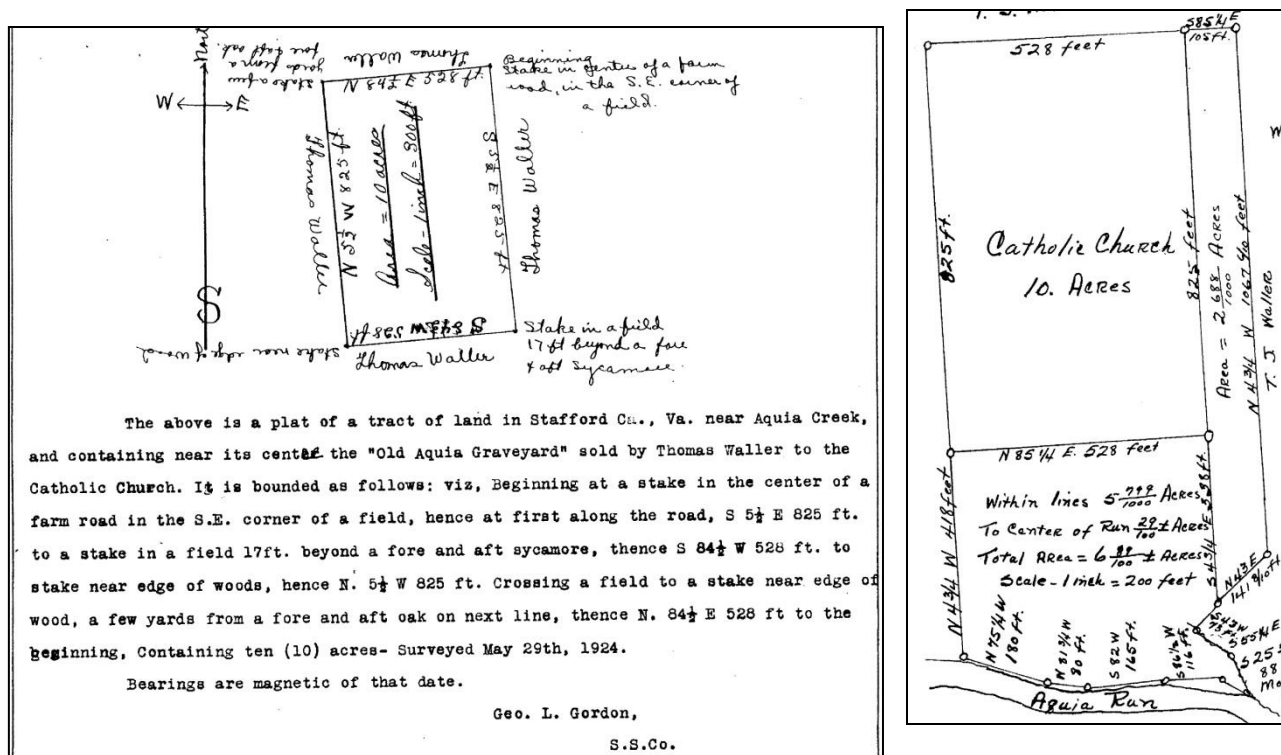 North
W
E
S
Stake a few
yards from a
fore & aft oak.
Thomas Waller
N 84½ E 528 ft.
Beginning
Stake in centre of a farm
road, in the S.E. corner of
a field.
Thomas Waller
N 5½ W 825 ft.
Area = 10 acres
Scale - 1 inch = 300 ft.
S 5½ E 825 ft
Thomas Waller
S 84½ W 528 ft.
Thomas Waller
Stake near edge of wood
Stake in a field
17 ft beyond a fore
& aft Sycamore.
The above is a plat of a tract of land in Stafford Co., Va. near Aquia Creek,
and containing near its center the "Old Aquia Graveyard" sold by Thomas Waller to the
Catholic Church. It is bounded as follows: viz, Beginning at a stake in the center of a
farm road in the S.E. corner of a field, hence at first along the road, S 5½ E 825 ft.
to a stake in a field 17ft. beyond a fore and aft sycamore, thence S 84½ W 528 ft. to
stake near edge of woods, hence N. 5½ W 825 ft. Crossing a field to a stake near edge of
wood, a few yards from a fore and aft oak on next line, thence N. 84½ E 528 ft to the
beginning, Containing ten (10) acres- Surveyed May 29th, 1924.
Bearings are magnetic of that date.
Geo. L. Gordon,
S.S.Co.
S 85¼ E
105 ft.
528 feet
825 ft.
Catholic Church
10. Acres
825 feet
Area = 2 688/1000 Acres
N 4 3/4 W 1067 9/10 feet
T. J Waller
N 85 1/4 E. 528 feet
N 4 3/4 W 418 feet
Within lines 5 799/1000 Acres
To Center of Run 29/100 ± Acres
Total Area = 6 89/100 ± Acres
Scale - 1 inch = 200 feet
S 4 3/4 E 398 ft.
N 43 E
141 3/10 ft
N 75 1/4 W
180 ft.
N 81 3/4 W
80 ft.
S 82 W
165 ft.
S 86 1/2 W
116 ft.
S 43 W
73 ft.
S 55 1/4 E
S 25
88
Aquia Run